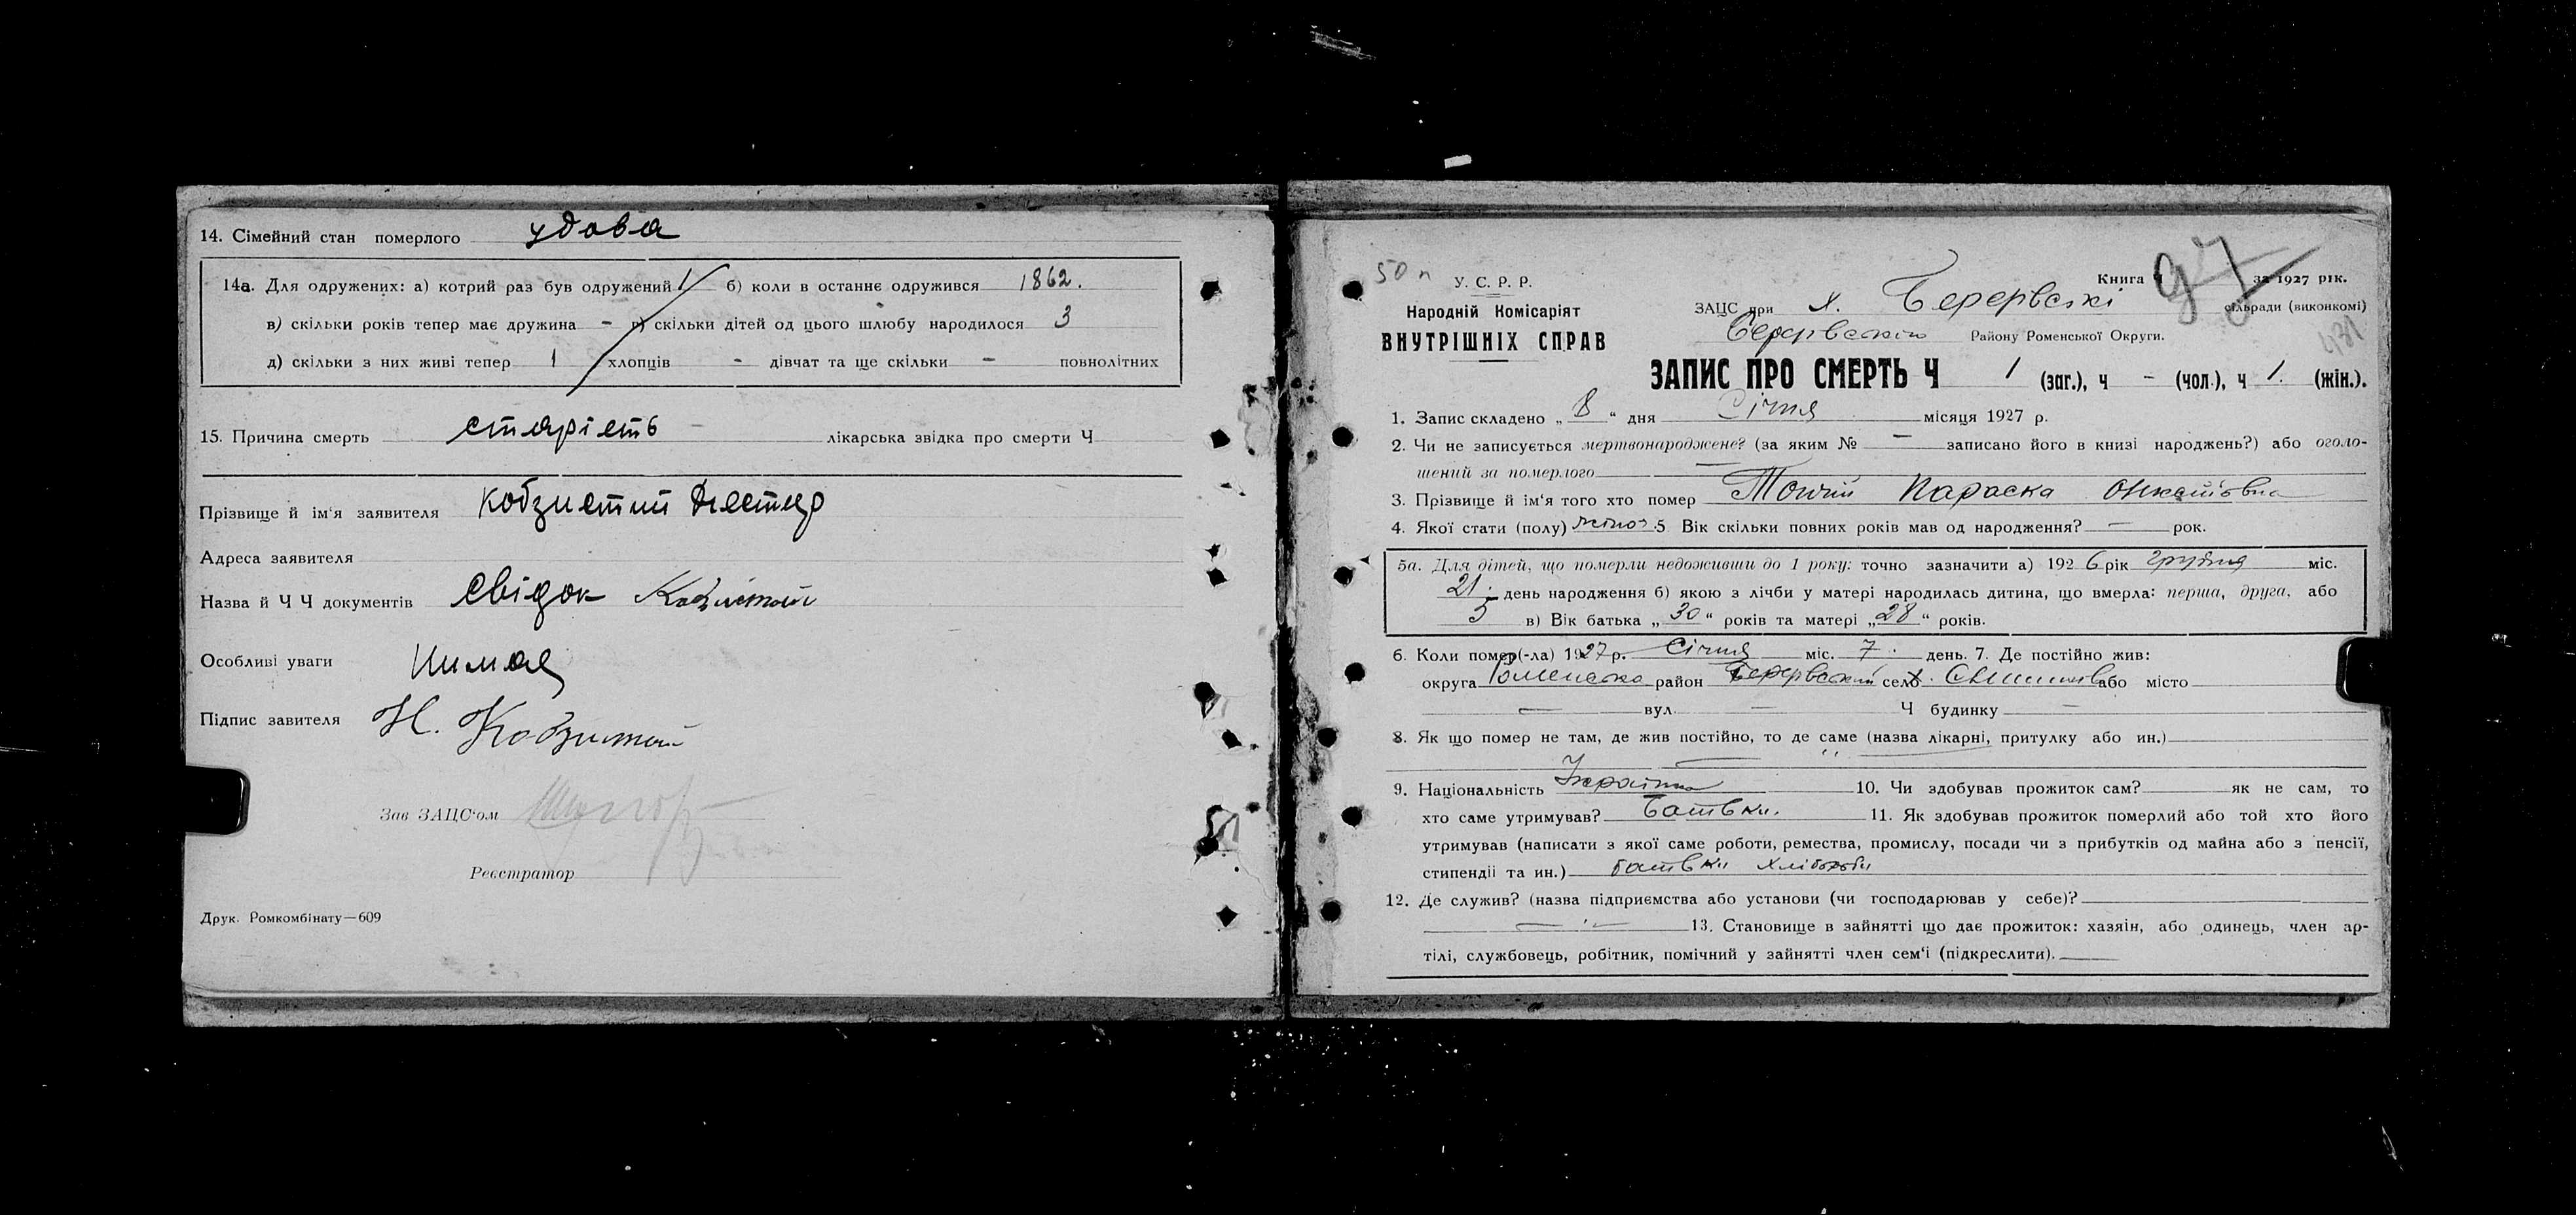 14. Сімейний стан померлого удова
14а. Для одружених: а) котрий раз був одружений 1 б) коли в останнє одружився 1862.
в) скільки років тепер має дружина - г) скільки дітей од цього шлюбу народилося 3
д) скільки з них живі тепер 1 хлопців - дівчат та ще скільки - повнолітних
15. Причина смерть старість лікарська звідка про смерти Ч
Прізвище й ім'я заявителя Кобзистий Нестер
Адреса заявителя
Назва й Ч Ч документів Свідок Кобзистий
Особливі уваги Нимає
Підпис завителя Н. Кобзистий
Зав ЗАЦС'ом
Реєстратор
Друк. Ромкомбінату—609
50 п
У. С. Р. Р.
Народній Комісаріят
ВНУТРІШНІХ СПРАВ
Книга Ч за 1927 рік.
97
ЗАЦС при х. сільради (виконкомі)
Району Роменської Округи.
431
ЗАПИС ПРО СМЕРТЬ Ч 1 (заг.), ч - (чол.), ч 1. (жін.).
1. Запис складено „ 8 “ дня Січня місяця 1927 р.
2. Чи не записується мертвонароджене? (за яким № — записано його в книзі народжень?) або оголо-
шений за померлого —
3. Прізвище й ім'я того хто помер Параска
4. Якої стати (полу) жіноч. 5. Вік скільки повних років мав од народження? — рок.
5а. Для дітей, що померли недоживши до 1 року: точно зазначити а) 1926 рік грудня міс.
21. день народження б) якою з лічби у матері народилась дитина, що вмерла: перша, друга, або
5 в) Вік батька „ 30 “ років та матері „ 28 “ років.
6. Коли помер(-ла) 1927 р. Січня міс. 7. день. 7. Де постійно жив:
округа Роменська район село х. або місто
— вул. — Ч будинку —
8. Як що помер не там, де жив постійно, то де саме (назва лікарні, притулку або ин.)
9. Національність Українка 10. Чи здобував прожиток сам? як не сам, то
хто саме утримував? Батьки. 11. Як здобував прожиток померлий або той хто його
утримував (написати з якої саме роботи, ремества, промислу, посади чи з прибутків од майна або з пенсії,
стипендії та ин.) батьки хлібороби
12. Де служив? (назва підприємства або установи (чи господарював у себе)?
13. Становище в зайнятті що дає прожиток: хазяін, або одинець, член ар-
тілі, службовець, робітник, помічний у зайнятті член сем'і (підкреслити).